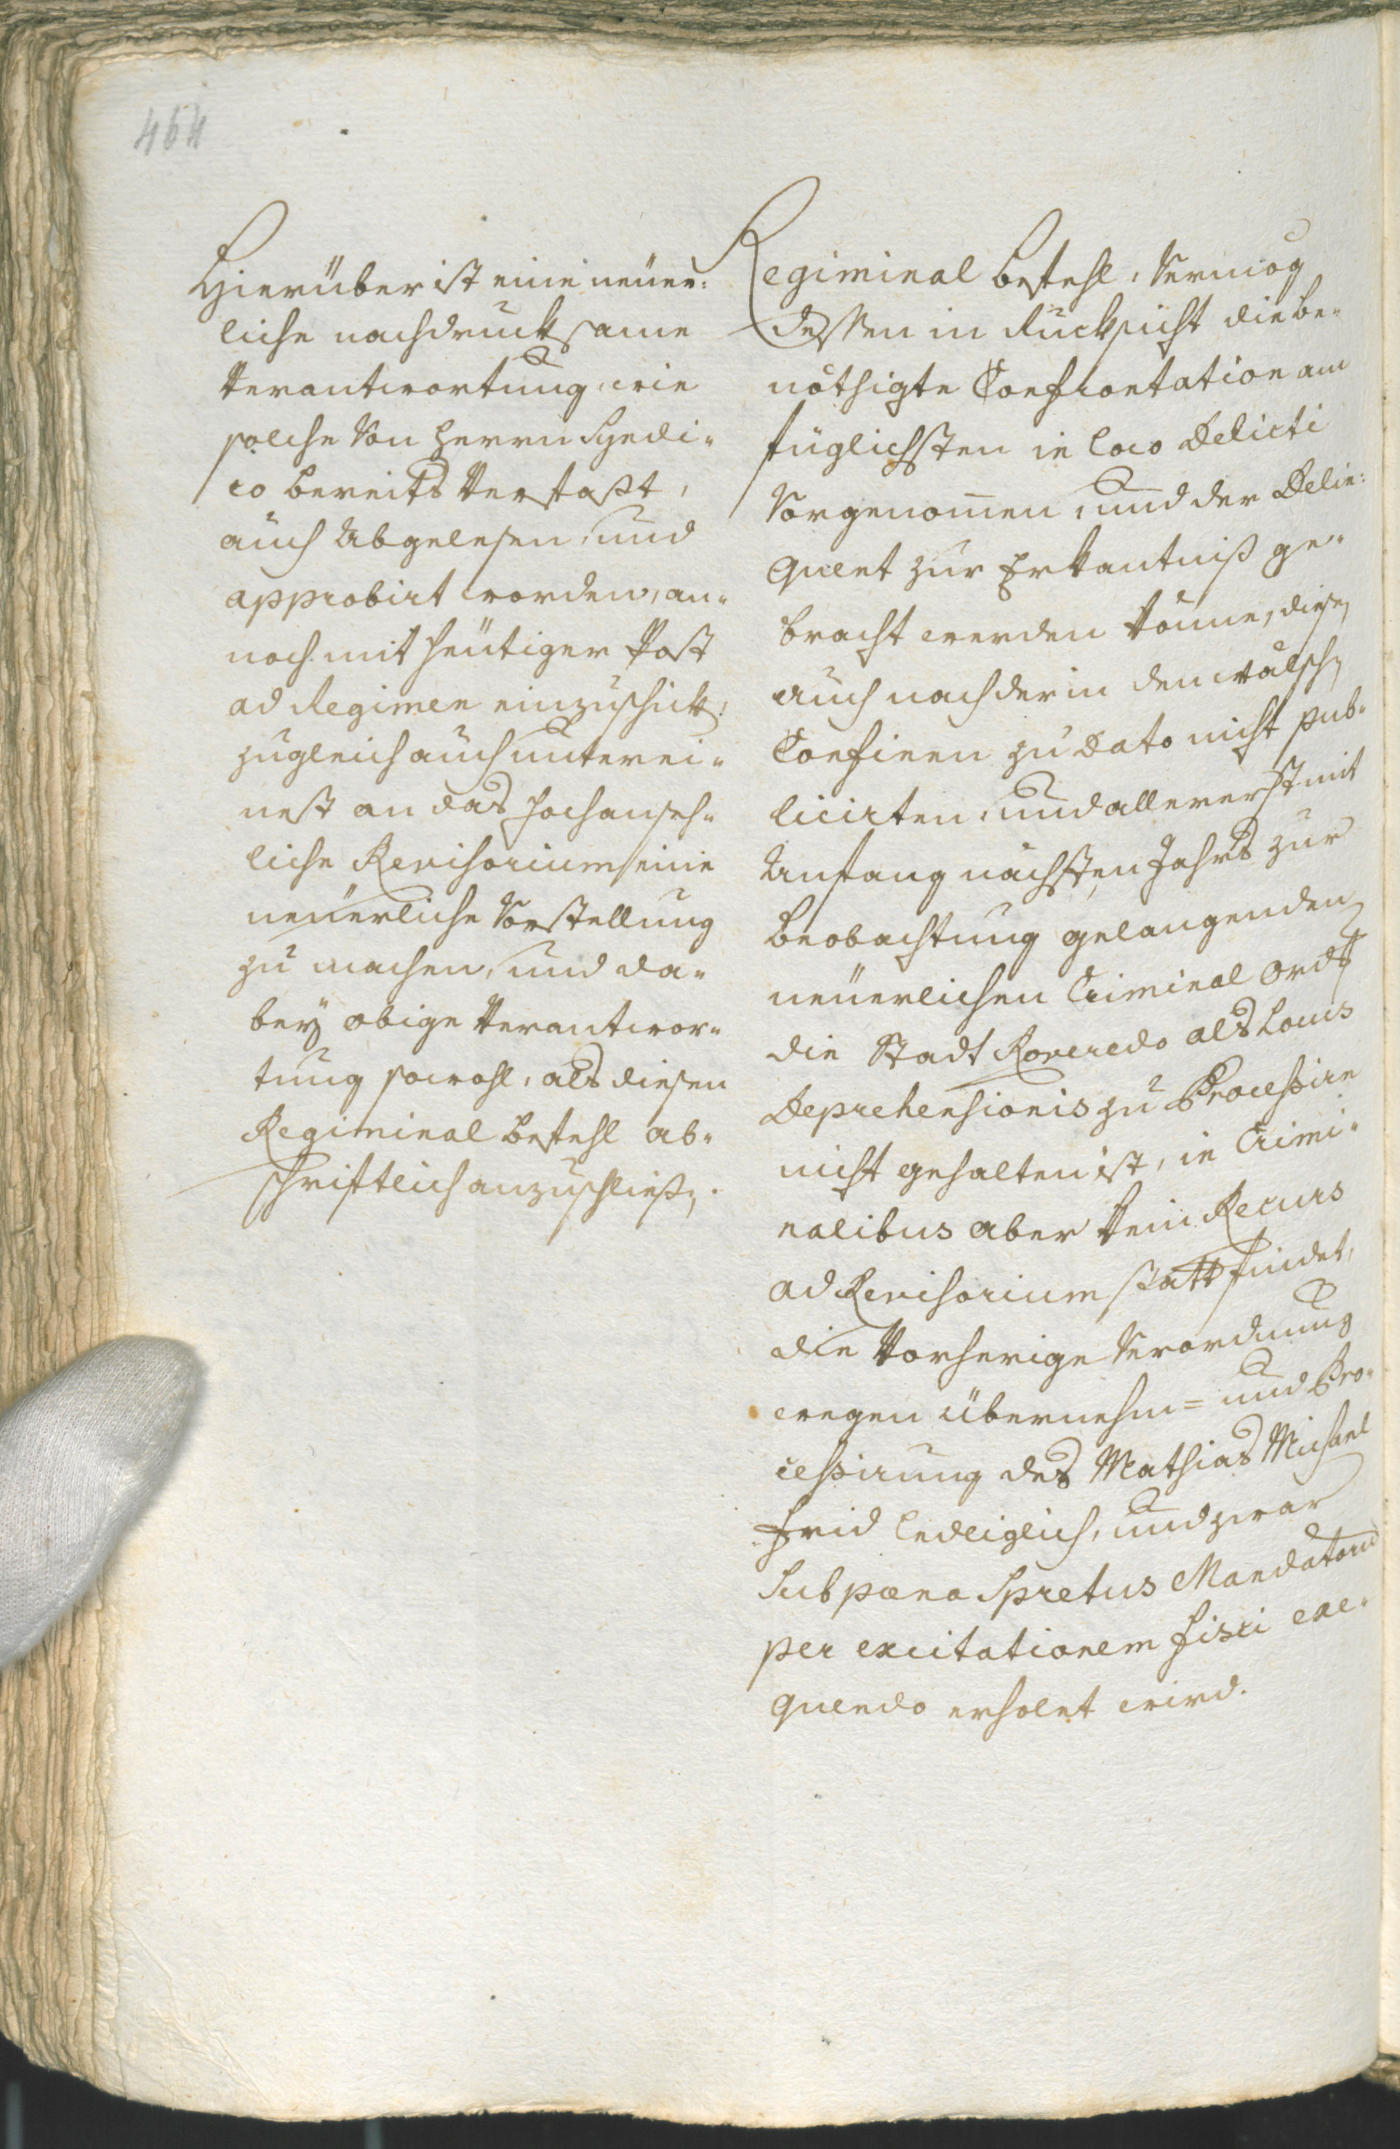 464
Hierüber ist eine neüer:
liche nachdrucksame
Verantwortung, wie
solche von Herrn Syndi-
co bereits verfaßt,
auch abgelesen, und
approbirt worden, an-
noch mit heütiger Post
ad Regimen einzuschick:
zugleich auch unterei-
nest an das hochanseh-
liche Revisorium eine
neüerliche Vorstellung
zu machen, und da-
bey obige Verantwor-
tung sowohl, als diesen
Regiminal befehl ab-
schriftlich anzuschließen.
Regiminal befehl, Vermög
dessen in Rücksicht die be-
nöthigte Confrontation am
füglichsten in loco Delicti
Vorgenom̄en, und der Delin:
quent zur Erkantniß ge-
bracht werden könne, diesen
auch nach der in den wälsch
Confinen zu Dato nicht pub-
licirten, und allererst mit
Anfang nächsten Jahrs zur
beobachtung gelangenden
neüerlichen Criminal Ords
die Stadt Roveredo als Locus
Deprehensionis zu Processiren
nicht gehalten ist, in Crimi-
nalibus aber kein Recurs
ad Revisorium statt findet,
die Vorherige Verordnung
wegen übernehm- und Pro-
cessirung des Mathias Michael
Frid lediglich, und zwar
sub poena Spretus Mandatorum
per excitationem fisci exe-
quendo erholet wird.